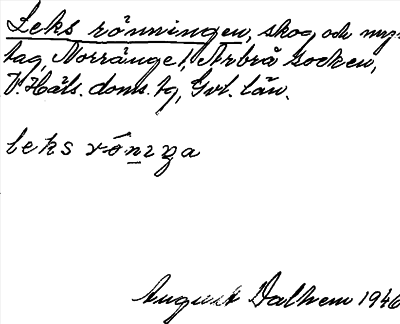 Leks rönningen, skog och myr-
tag, Norränge, Arbrå socken,
V. Häls. doms. tg, Gvl. län.
leks rónıŋa
August Dalhem 1946